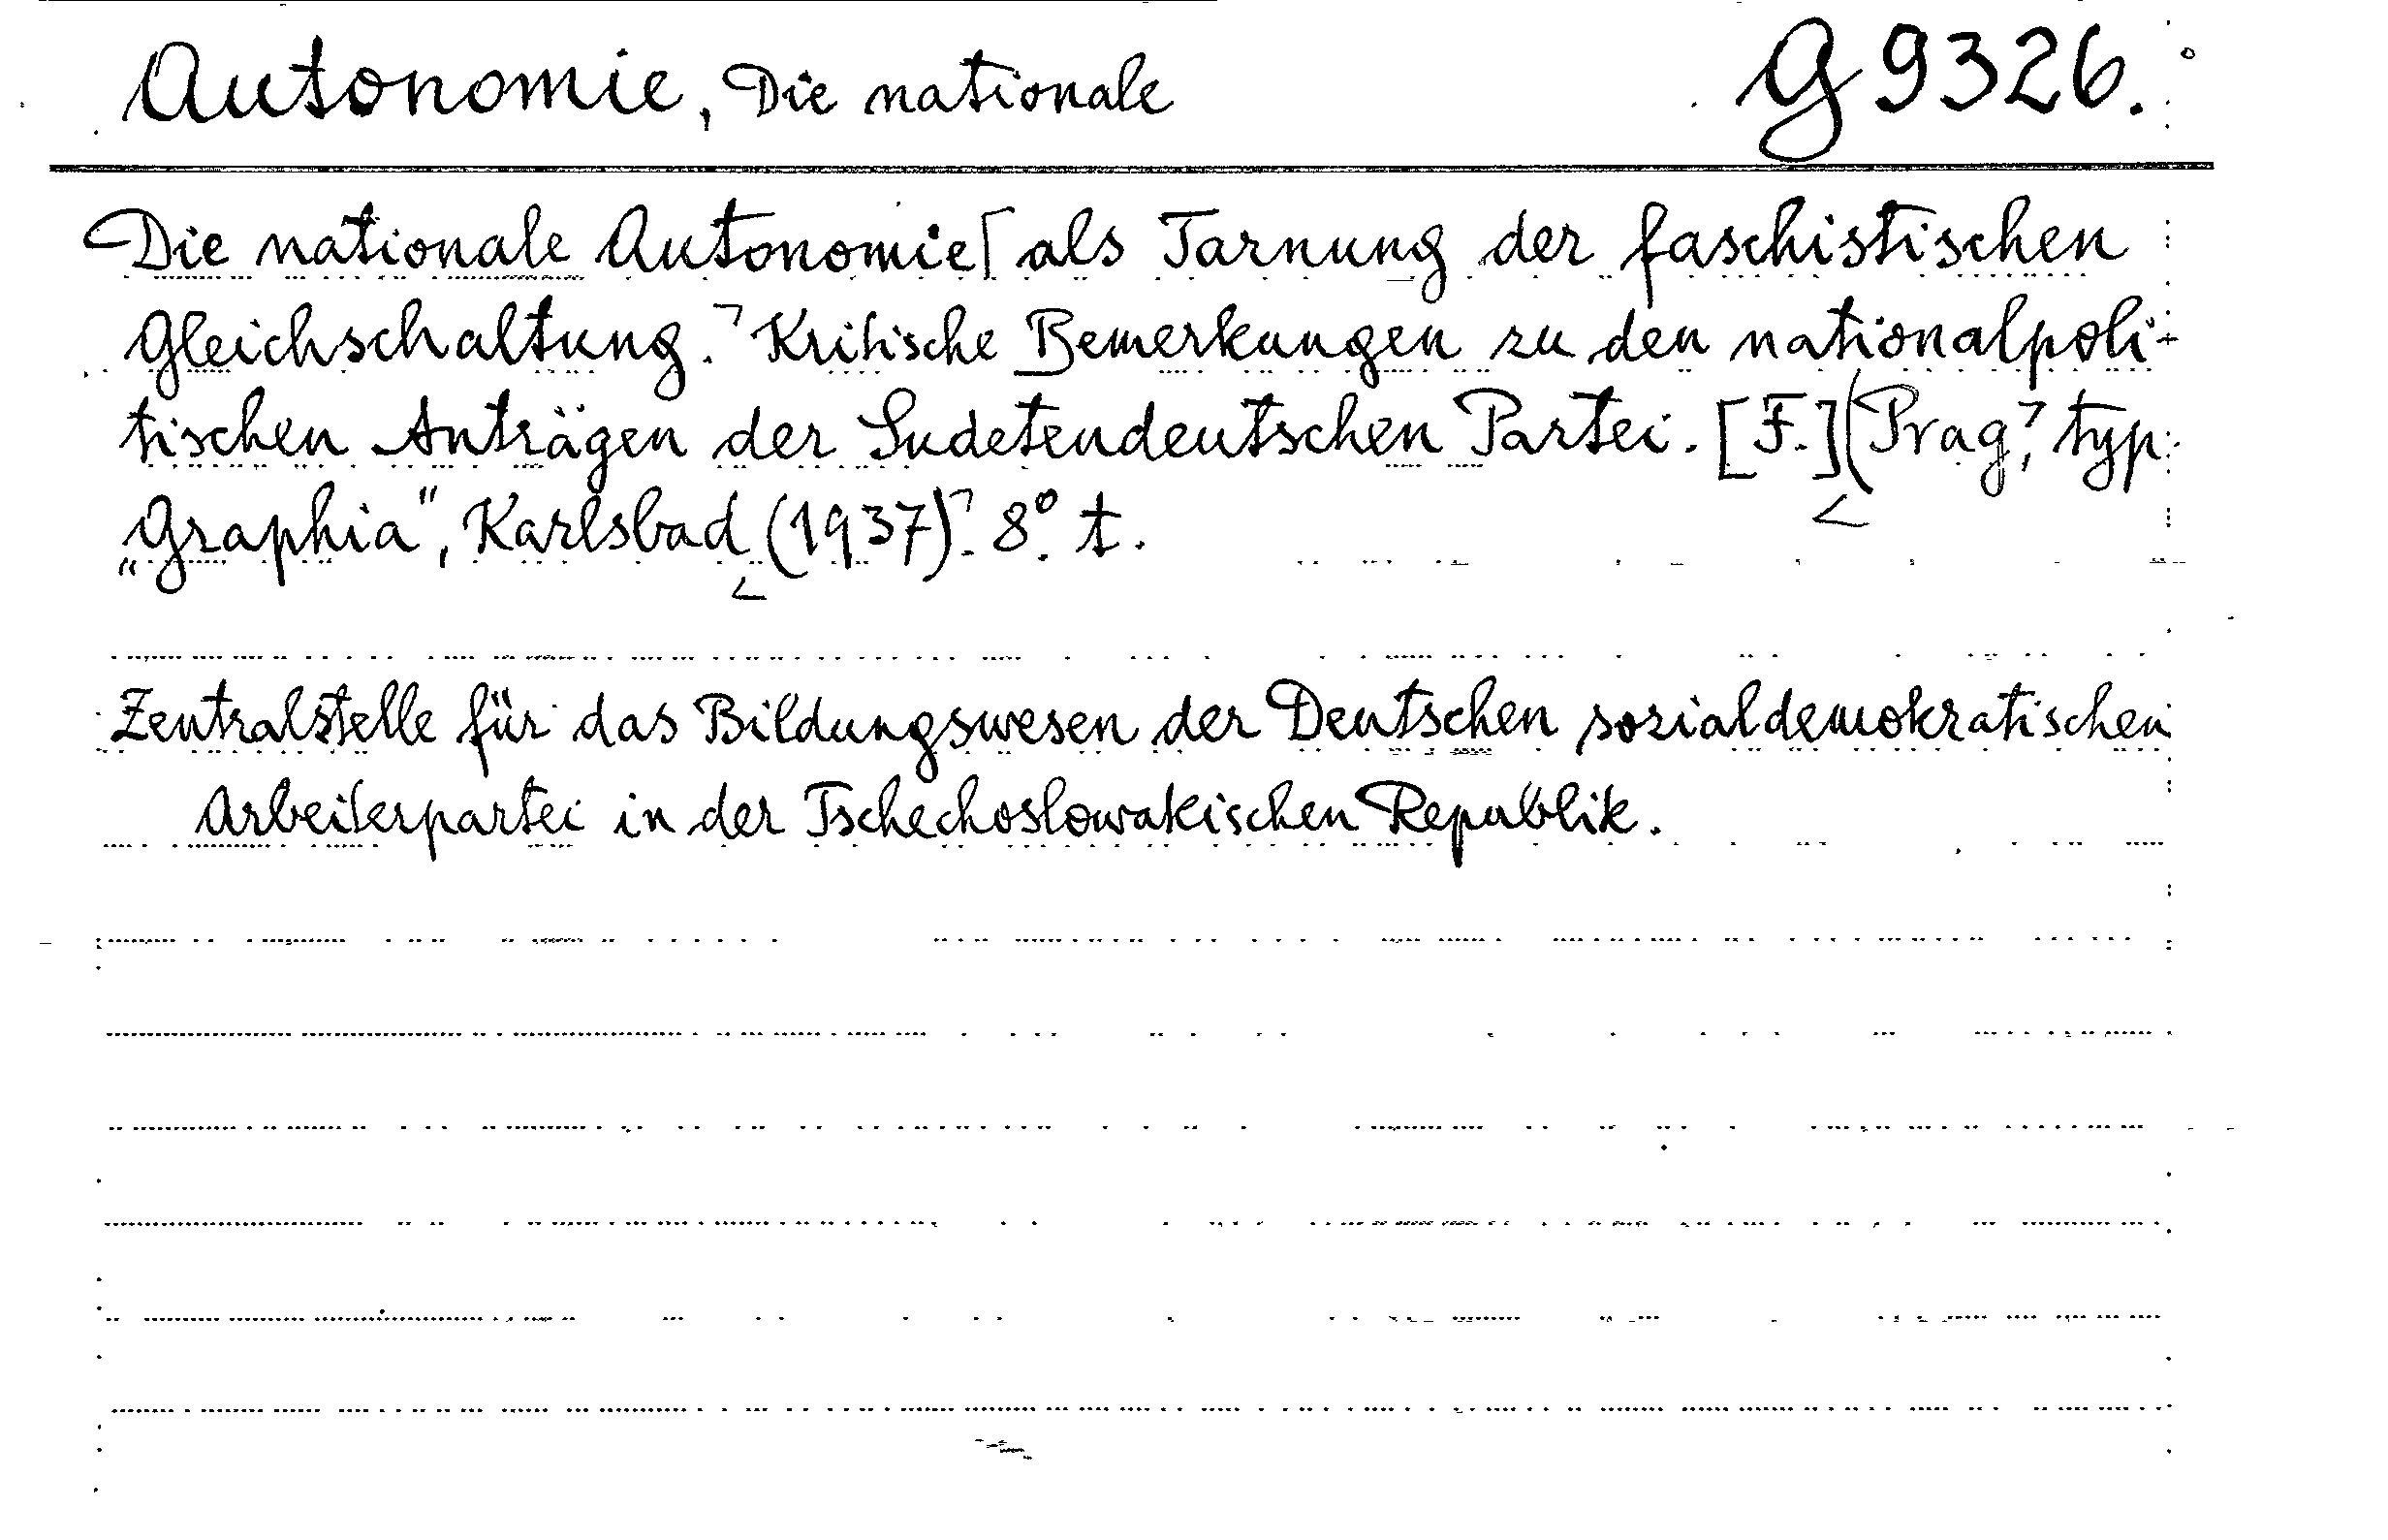 Autonomie, Die nationale G 9326.
Die nationale Autonomie⌈ als Tarnung der faschistischen
Gleichschaltung.⌉ Kritische Bemerkungen zu den nationalpoli-
tischen Anträgen der Sudetendeutschen Partei. [F.] (Prag,⌉ typ.
„Graphia“, Karlsbad (1937)⌉. 8°. t.
Zentralstelle für das Bildungswesen der Deutschen sozialdemokratischen
Arbeiterpartei in der Tschechoslowakischen Republik.